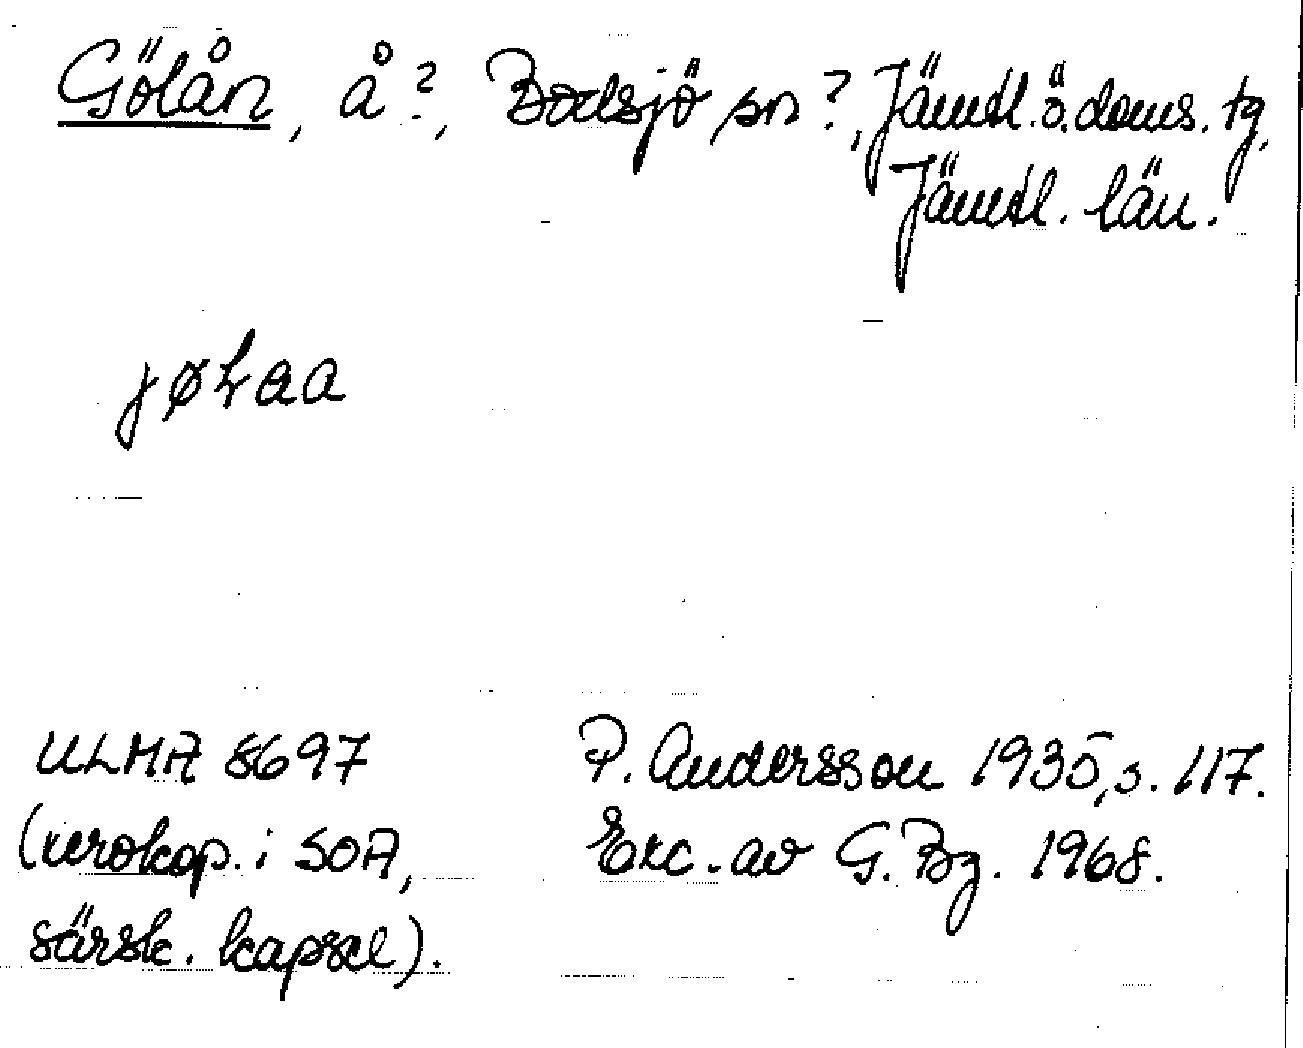 Gölån, å?, Bodsjö sn?, Jämtl. ö. doms. tg,
Jämtl. län.
jøƚaa
ULMA 8697 P. Andersson 1935, s. 117.
(xerokop. i SOA, Exc. av G. Bg. 1968.
särsk. kapsel).